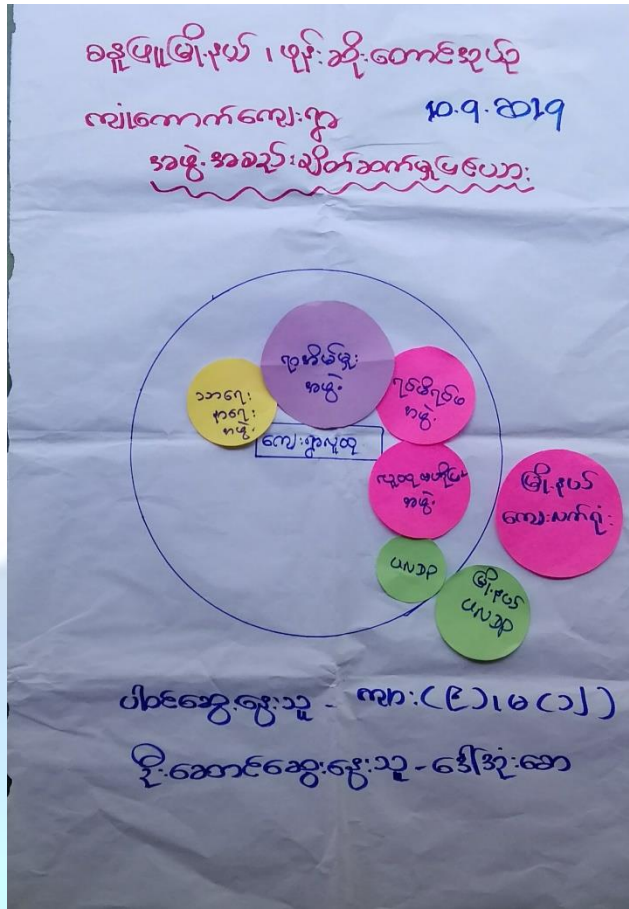 ဓနုဖြူမြို့နယ်၊ ဖုန်းဆိုးတောင်အုပ်စု
ကျုံကောက်ကျေးရွာ 10.9.2019
အဖွဲ့အစည်းချိတ်ဆက်မှုပြယား
ရာအိမ်မှူး
အဖွဲ့
သာရေး
နာရေး
အဖွဲ့
ရပ်မိရပ်ဖ
အဖွဲ့
ကျေးရွာလူထု
လူထုဗဟိုပြု
အဖွဲ့
မြို့နယ်
ကျေးလက်ရုံး
UNDP
မြို့နယ်
UNDP
ပါဝင်ဆွေးနွေးသူ - ကျား (၉)၊ မ (၁၂)
ဦးဆောင်ဆွေးနွေးသူ - ဒေါ်အုံးဆော